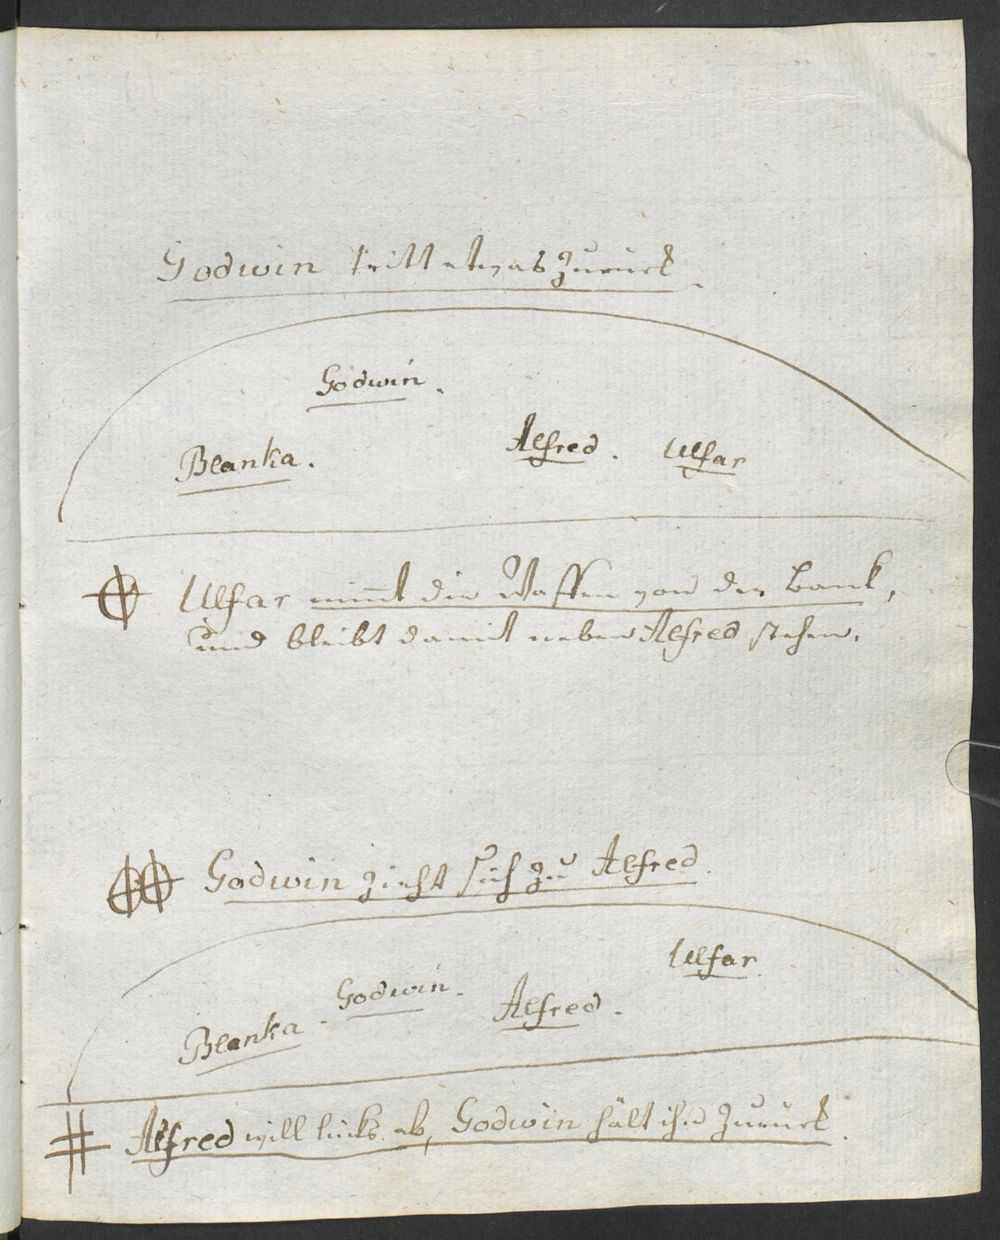 Godwin tritt etwas zurück.
Godwin.
Alfred. Ulfar
Blanka.
Ulfar nim̅t die Waffen von der Bank,
und bleibt damit neben Alfred stehen.
Godwin zieht sich zu Alfred.
Ulfar.
Godwin.
Alfred.
Blanka
Alfred will links ab, Godwin hält ihn zurück.